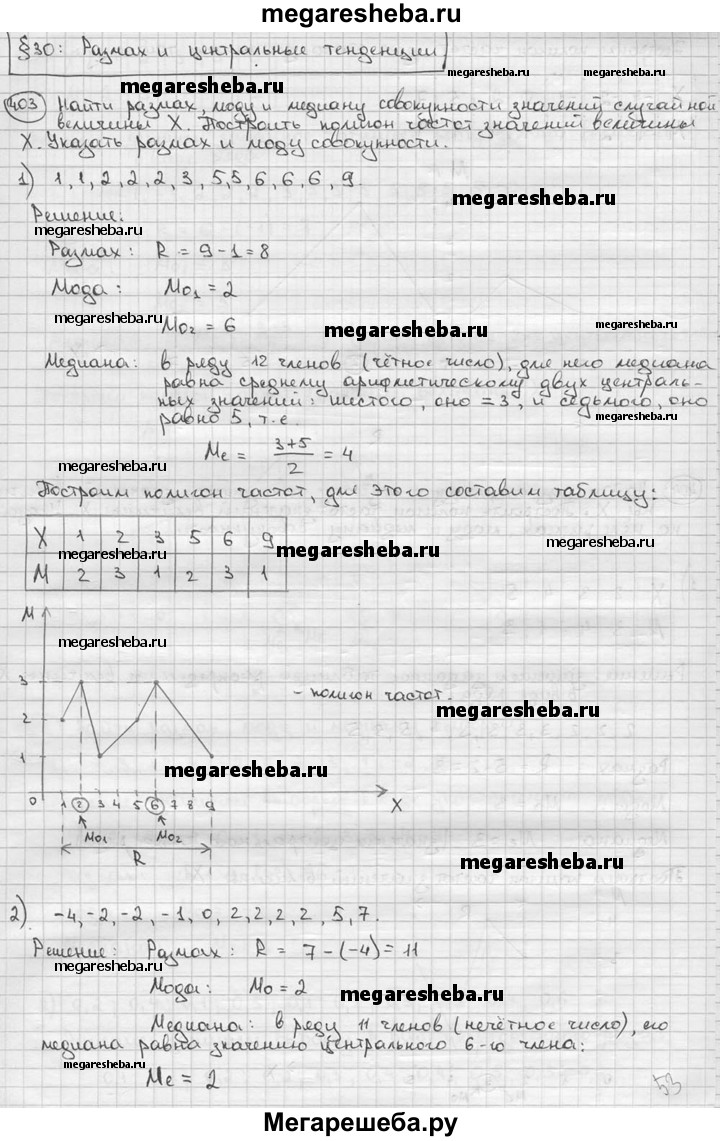 megaresheba.ru
§30: Размах и центральные тенденции
megaresheba.ru
megaresheba.ru
403 Найти размах, моду и медиану совокупности значений случайной
величины X. Построить полигон частот значений величины
X. Указать размах и моду совокупности.
1) 1, 1, 2, 2, 2, 3, 5, 5, 6, 6, 6, 9.
megaresheba.ru
Решение:
megaresheba.ru
Размах: R = 9 - 1 = 8
Мода: Mo1 = 2
megaresheba.ru
Mo2 = 6
megaresheba.ru
megaresheba.ru
Медиана: в ряду 12 членов (чётное число), для него медиана
равна среднему арифметическому двух централь-
ных значений: шестого, оно = 3, и седьмого, оно
равно 5, т.е.
megaresheba.ru
Me = (3+5)/2 = 4
megaresheba.ru
Построим полигон частот, для этого составим таблицу:
X 1 2 3 5 6 9
megaresheba.ru
megaresheba.ru
megaresheba.ru
M 2 3 1 2 3 1
M
megaresheba.ru
3
- полигон частот.
megaresheba.ru
2
1
megaresheba.ru
0 1 2 3 4 5 6 7 8 9 X
Mo1 Mo2
R
megaresheba.ru
2) -4, -2, -2, -1, 0, 2, 2, 2, 2, 5, 7.
Решение: Размах: R = 7 - (-4) = 11
megaresheba.ru
Мода: Mo = 2
megaresheba.ru
Медиана: в ряду 11 членов (нечётное число), его
медиана равна значению центрального 6-го члена:
megaresheba.ru
Me = 2
53
Мегарешеба.ру